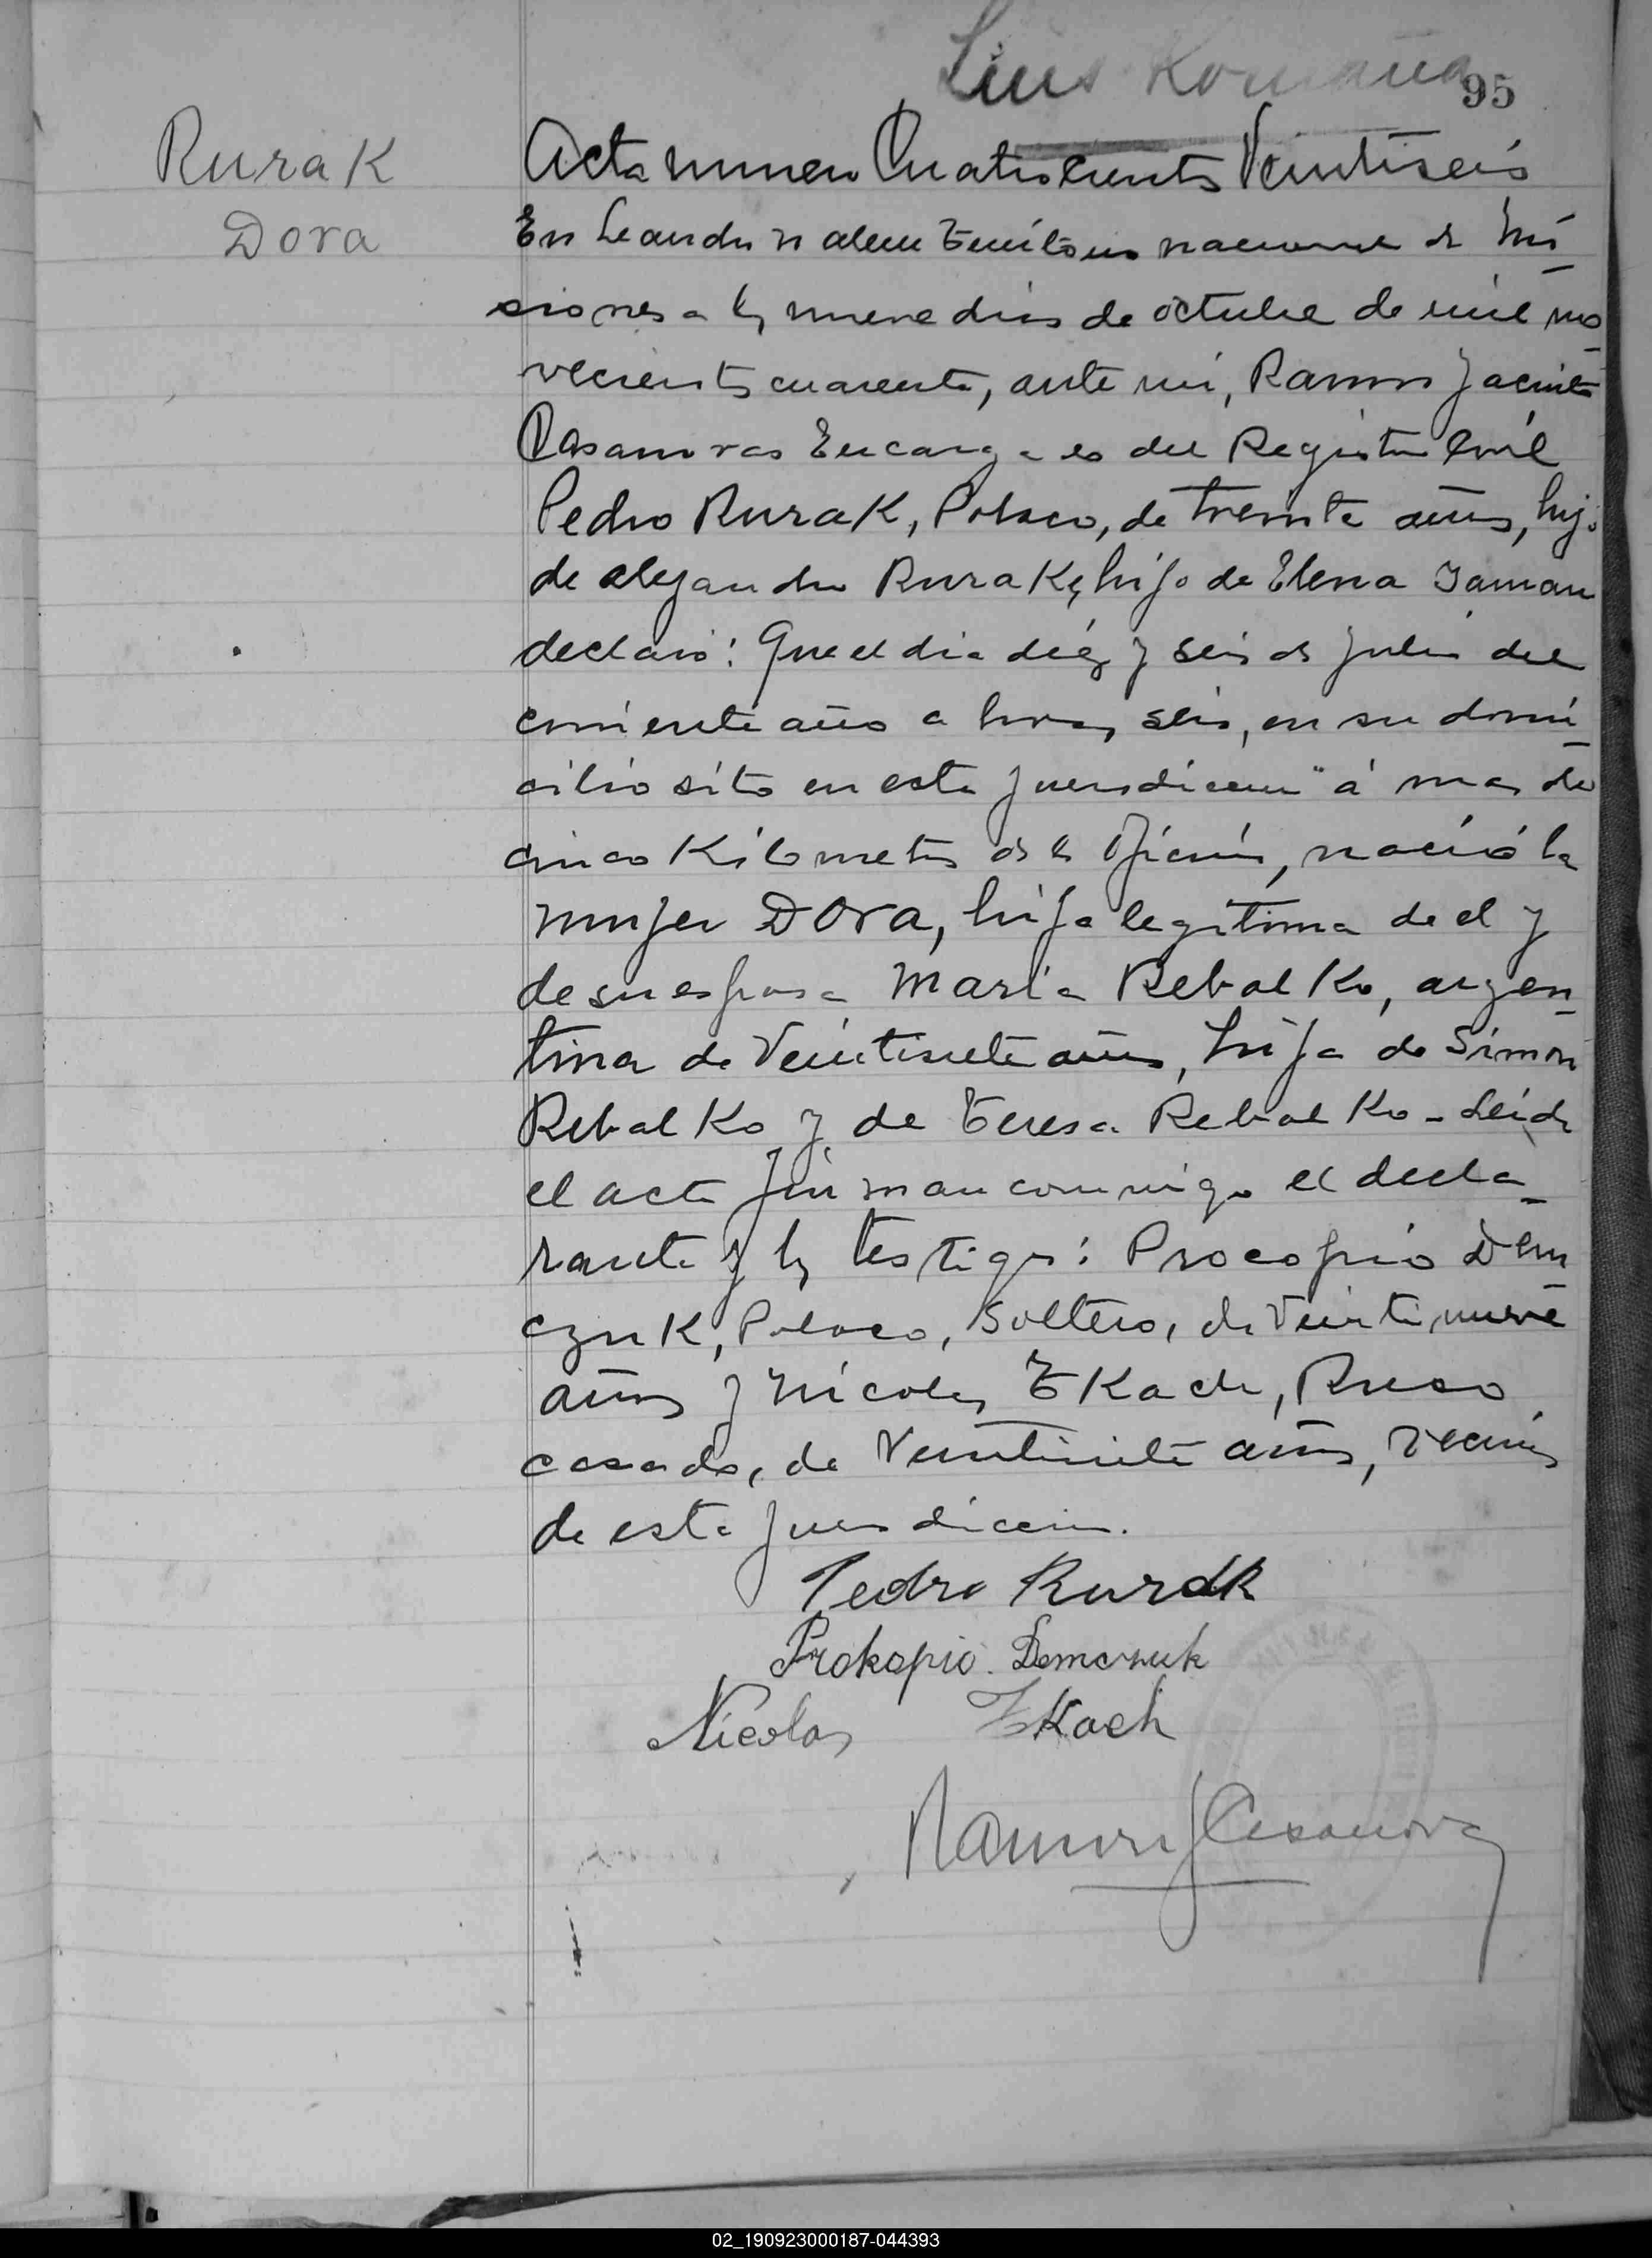 Luis
95
Rurak
Dora
Acta numero Cuatrocientos Veintiseis
En Leandro N alem Territorio nacional de Mi
siones a los nueve dias de octubre de mil no
vecientos cuarenta, ante mi, Ramon Jacinto
Casanovas Encargado del Registro Civil
Pedro Rurak, Polaco, de treinta años, hijo
de alejandro Rurak y hijo de Elena Jaman
declaró: Que el dia diéz y seis de julio del
corriente año a horas seis, en su domi
cilio sito en esta jurisdiccion á mas de
cinco Kilometros de la Oficina, nació la
mujer DOra, hija legitima de el y
de su esposa Maria Rebalko, argen
tina de Veintisiete años, hija de Simon
Rebalko y de Teresa Rebalko - Leida
el acta firman conmigo el decla
rante y los testigos: Procopio Dem
czuk, Polaco, soltero, de Veintinueve
años y Nicolas Tkach, Ruso
casado, de Veintisiete años, vecinos
de esta jurisdiccion.
Pedro Rurak
Prokopio Demczuk
Nicolas Tkach
Ramon J Casanova
02_190923000187-044393